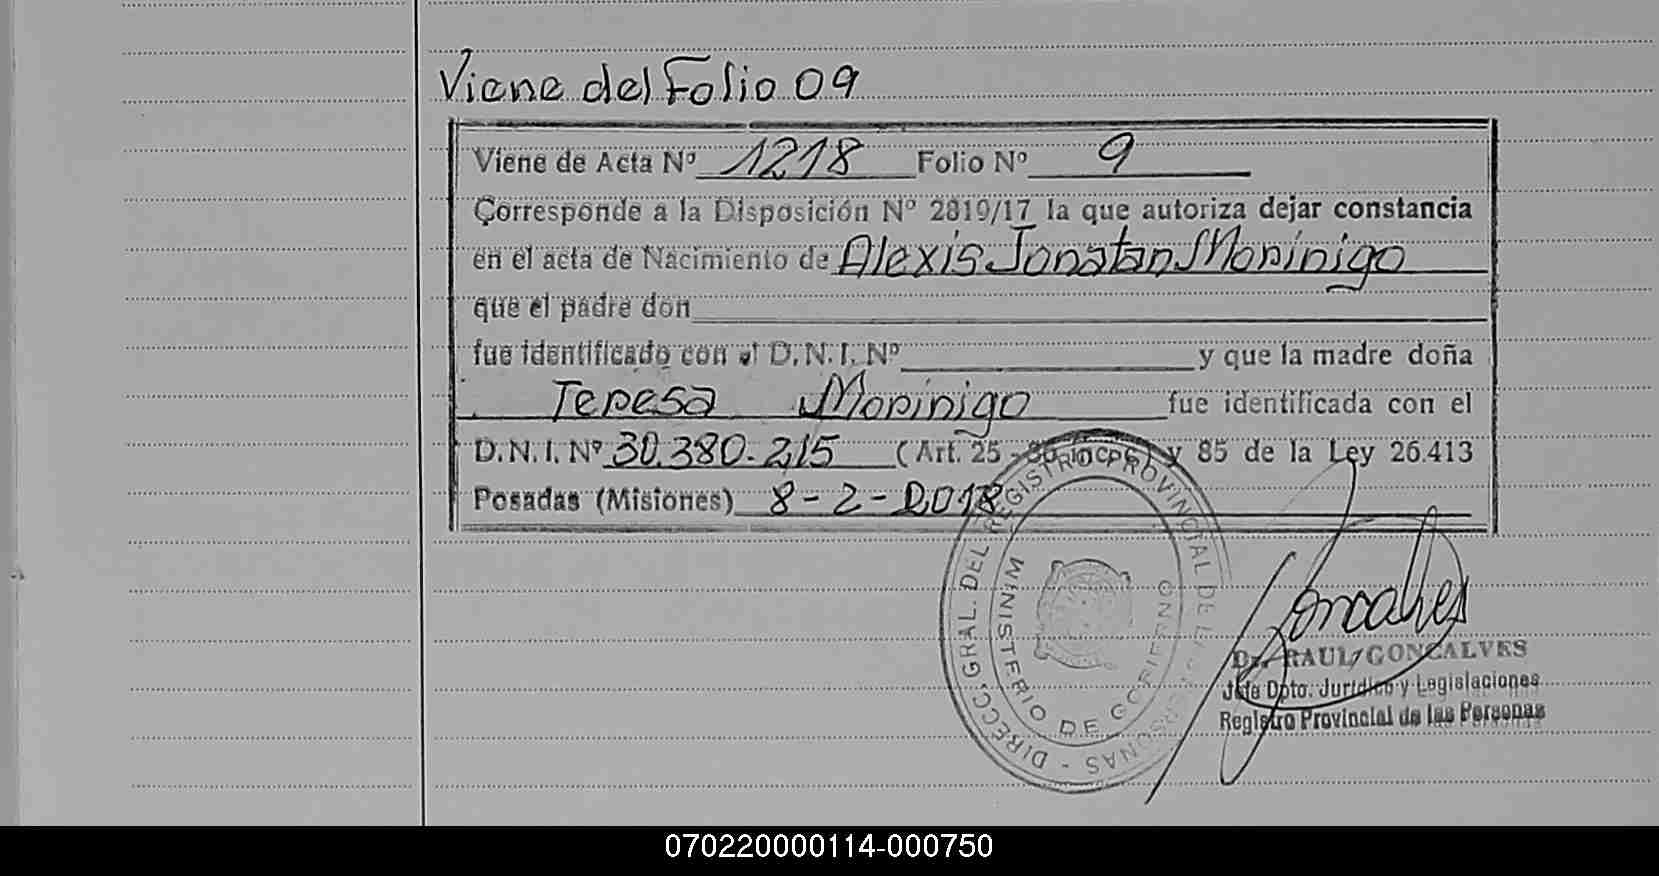 Viene del Folio 09
Viene de Acta Nº 1218 Folio Nº 9
Corresponde a la Disposición Nº 2819/17 la que autoriza dejar constancia
en el acta de Nacimiento de Alexis Jonatan Morínigo
que el padre don
fue identificado con el D.N.I. Nº y que la madre doña
Teresa Morínigo fue identificada con el
D.N.I. Nº 30.380.215 (Art. 25 - y 85 de la Ley 26.413
Posadas (Misiones) 8-2-2018
DIRECC. GRAL. DEL REGISTRO PROVINCIAL DE LAS PERSONAS -
MINISTERIO DE GOBIERNO
Goncalves
Dr. RAUL GONCALVES
Jefe Dpto. Jurídico y Legislaciones
Registro Provincial de las Personas
070220000114-000750